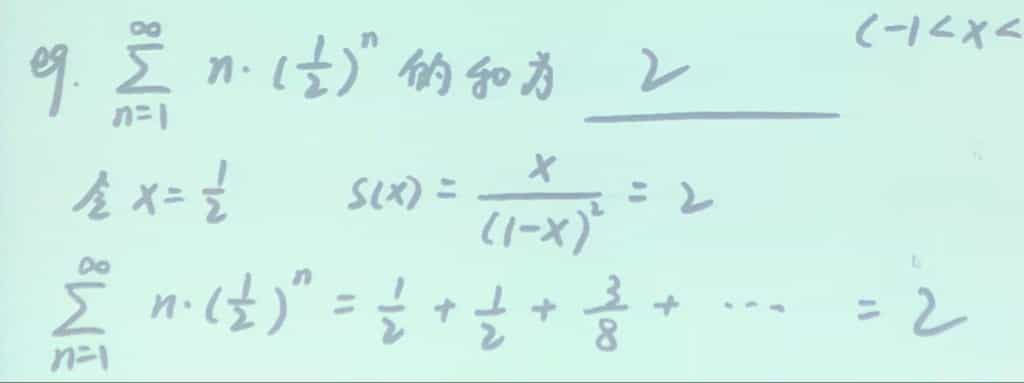 eg. ∑_{n=1}^{∞} n·(1/2)^n 的和为 2 (-1<x<
令 x=1/2 S(x) = x/(1-x)^2 = 2
∑_{n=1}^{∞} n·(1/2)^n = 1/2 + 1/2 + 3/8 + ··· = 2